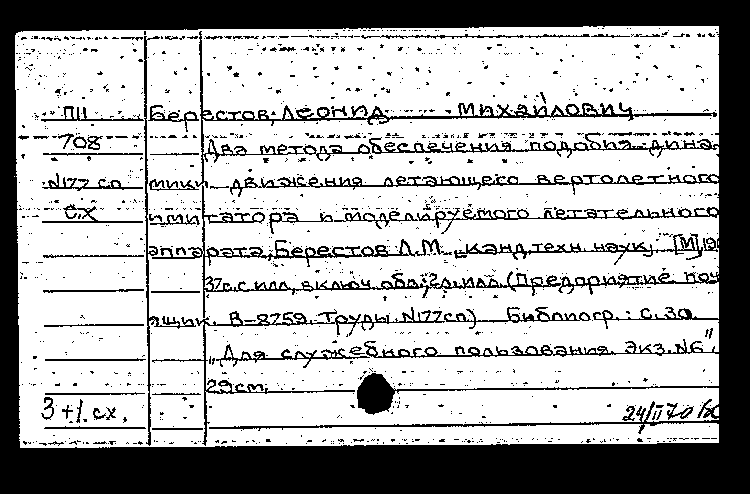 ПII Берестов, Леонид Михайлович
708 Два метода обеспечения подобия дина-
N177 сп мики движения летающего вертолетного
с.х имитатора и моделируемого летательного
аппарата, Берестов Л.М. „канд. техн. наук„ [М], 19
37с. с илл, включ. обл.; 2л. илл. (Предприятие поч
ящик. В-8759. Труды N177сп) Библиогр.: с. 30.
„Для служебного пользования. Экз. N6".
29см.
3+1. сх. 24/II 70